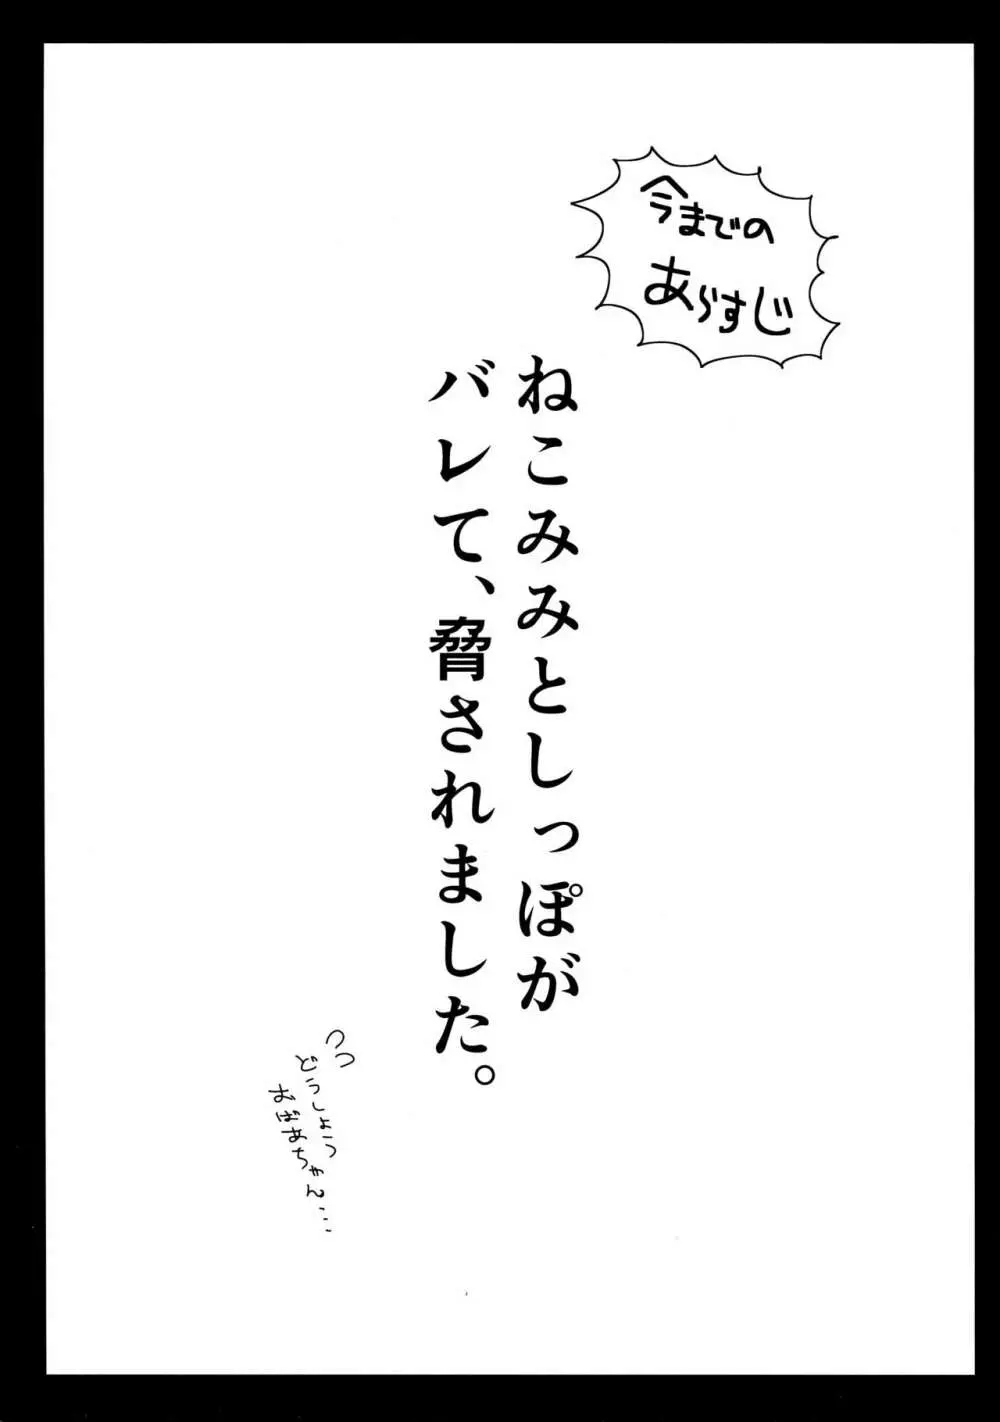 今までの
あらすじ
ねこみみとしっぽが
バレて、脅されました。
うう
どうしよう
おばあちゃん…